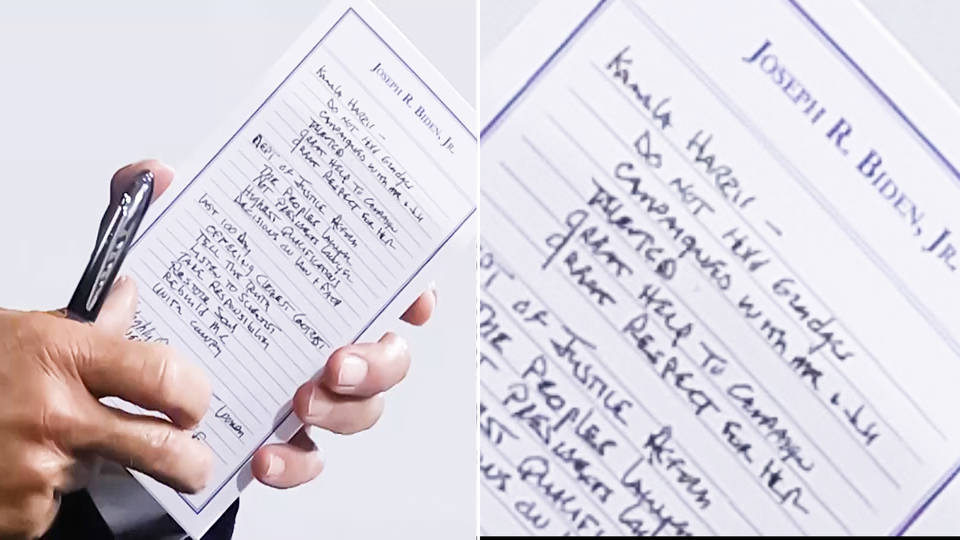 JOSEPH R. BIDEN, JR.
Kamala HARRIS –
DO NOT HOLD Grudges
CAMPAIGNED WITH ME & Jill
TALENTED
GREAT HELP TO CAMPAIGN
GREAT RESPECT FOR HER
DEPT OF JUSTICE REFORM
THE PEOPLES Lawyer
NOT PRESIDENTS Lawyer
HIGHEST QUALIFICATIONS
DECISIONS ON LAW + FACT
LAST 100 DAYS
CONTRAST
TELL THE TRUTH
LISTEN TO SCIENTIST
TAKE RESPONSIBILITY
RESTORE Soul
REBUILD M.C
UNITE COUNTRY
JOSEPH R. BIDEN, JR.
Kamala HARRIS –
DO NOT HOLD Grudges
CAMPAIGNED WITH ME & Jill
TALENTED
GREAT HELP TO CAMPAIGN
GREAT RESPECT FOR HER
PT OF JUSTICE REFORM
THE PEOPLES Lawyer
PRESIDENTS